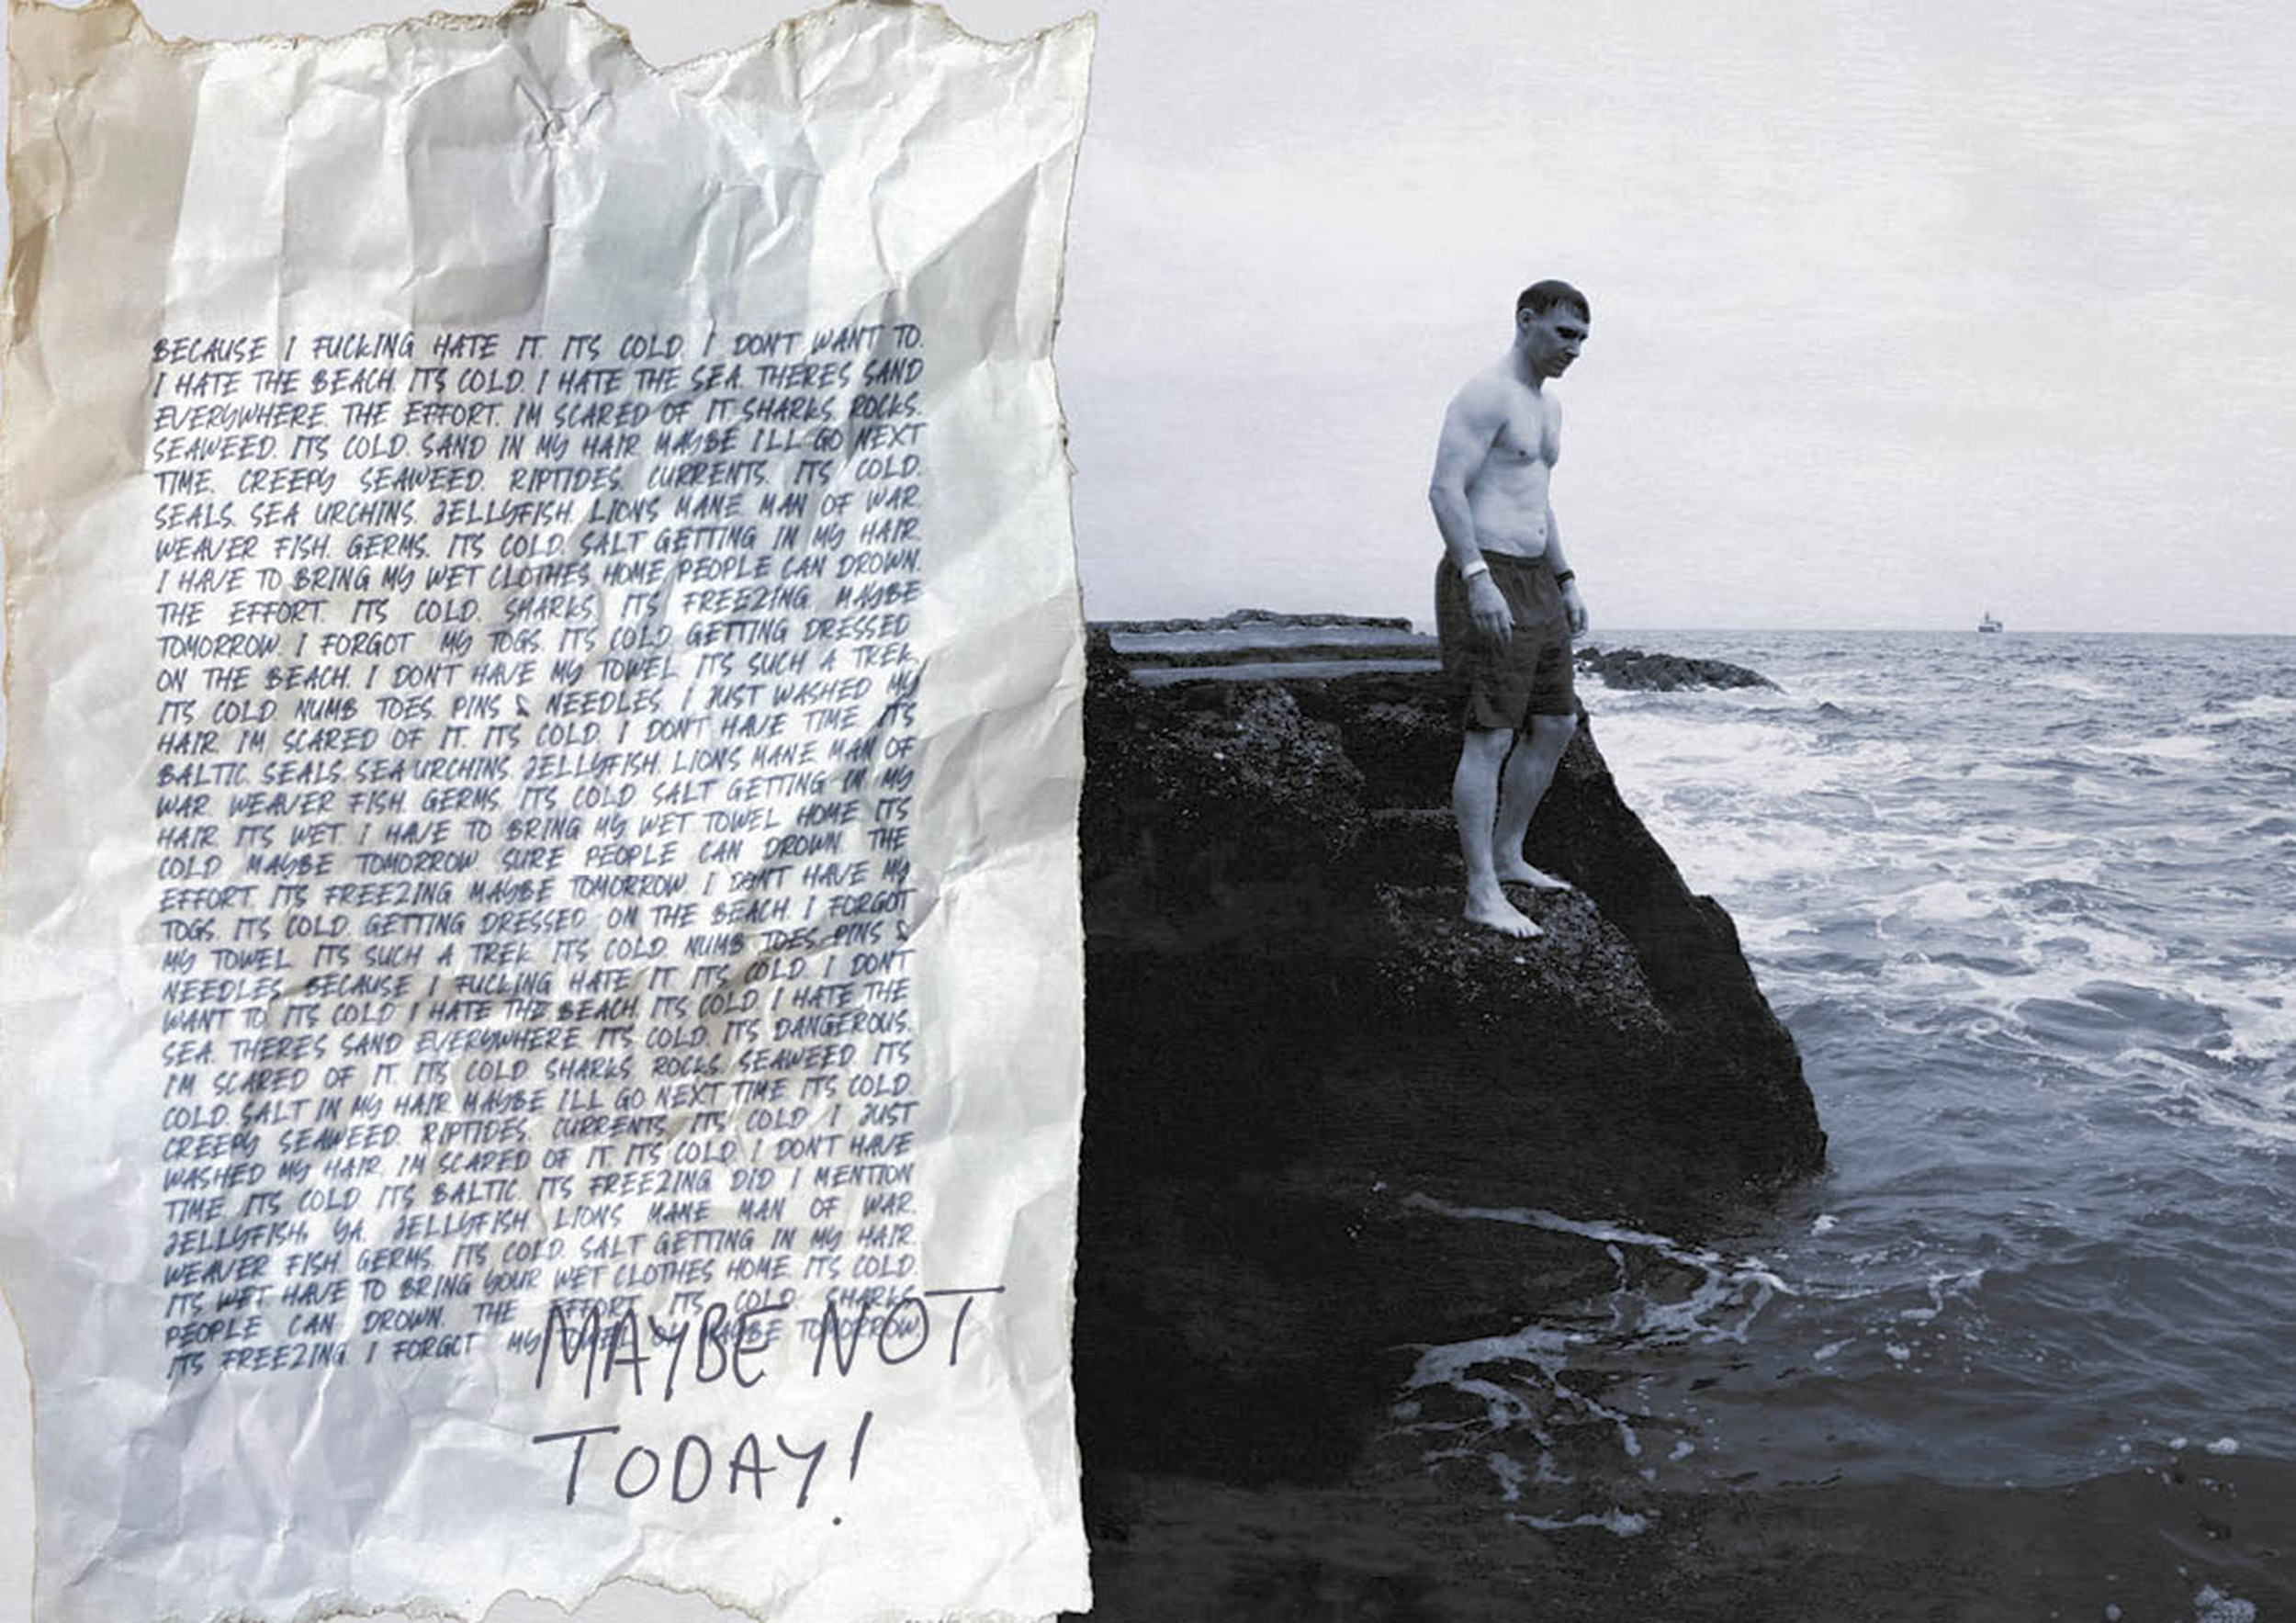 BECAUSE I FUCKING HATE IT. ITS COLD. I DONT WANT TO.
I HATE THE BEACH. ITS COLD. I HATE THE SEA. THERES SAND
EVERYWHERE. THE EFFORT. IM SCARED OF IT. SHARKS. ROCKS.
SEAWEED. ITS COLD. SAND IN MY HAIR. MAYBE ILL GO NEXT
TIME. CREEPY SEAWEED. RIPTIDES. CURRENTS. ITS COLD.
SEALS. SEA URCHINS. JELLYFISH. LIONS MANE. MAN OF WAR.
WEAVER FISH. GERMS. ITS COLD. SALT GETTING IN MY HAIR.
I HAVE TO BRING MY WET CLOTHES HOME. PEOPLE CAN DROWN.
THE EFFORT. ITS COLD. SHARKS. ITS FREEZING. MAYBE
TOMORROW. I FORGOT MY TOGS. ITS COLD. GETTING DRESSED
ON THE BEACH. I DON'T HAVE MY TOWEL. ITS SUCH A TREK.
ITS COLD. NUMB TOES. PINS & NEEDLES. I JUST WASHED MY
HAIR. IM SCARED OF IT. ITS COLD. I DONT HAVE TIME. ITS
BALTIC. SEALS. SEA URCHINS. JELLYFISH. LIONS MANE. MAN OF
WAR. WEAVER FISH. GERMS. ITS COLD. SALT GETTING IN MY
HAIR. ITS WET. I HAVE TO BRING MY WET TOWEL HOME. ITS
COLD. MAYBE TOMORROW. SURE PEOPLE CAN DROWN. THE
EFFORT. ITS FREEZING. MAYBE TOMORROW. I DON'T HAVE MY
TOGS. ITS COLD. GETTING DRESSED ON THE BEACH. I FORGOT
MY TOWEL. ITS SUCH A TREK. ITS COLD. NUMB TOES. PINS &
NEEDLES. BECAUSE I FUCKING HATE IT. ITS COLD. I DONT
WANT TO. ITS COLD. I HATE THE BEACH. ITS COLD. I HATE THE
SEA. THERES SAND EVERYWHERE. ITS COLD. ITS DANGEROUS.
I'M SCARED OF IT. ITS COLD. SHARKS. ROCKS. SEAWEED. ITS
COLD. SALT IN MY HAIR. MAYBE ILL GO NEXT TIME. ITS COLD.
CREEPY SEAWEED. RIPTIDES. CURRENTS. ITS COLD. I JUST
WASHED MY HAIR. IM SCARED OF IT. ITS COLD. I DON'T HAVE
TIME. ITS COLD. ITS BALTIC. ITS FREEZING. DID I MENTION
JELLYFISH, YA. JELLYFISH. LIONS MANE. MAN OF WAR.
WEAVER FISH. GERMS. ITS COLD. SALT GETTING IN MY HAIR.
ITS WET. HAVE TO BRING YOUR WET CLOTHES HOME. ITS COLD.
PEOPLE CAN DROWN. THE EFFORT. ITS COLD. SHARKS.
ITS FREEZING. I FORGOT MY TOWEL. MAYBE TOMORROW
MAYBE NOT
TODAY!